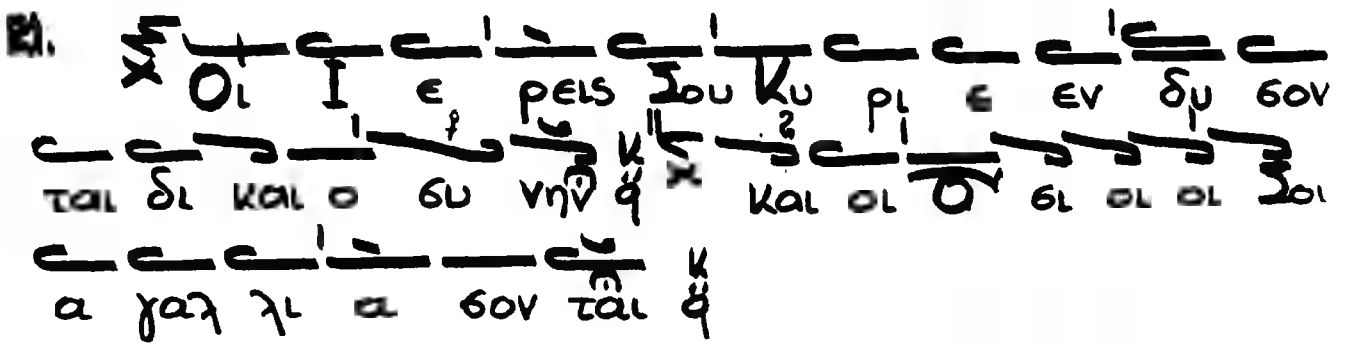 Οι Ι ε ρεις Σου Κυ ρι ε εν δυ σον
ται δι και ο συ νην και οι Ο σι οι οι Σοι
α γαλ λι α σον ται